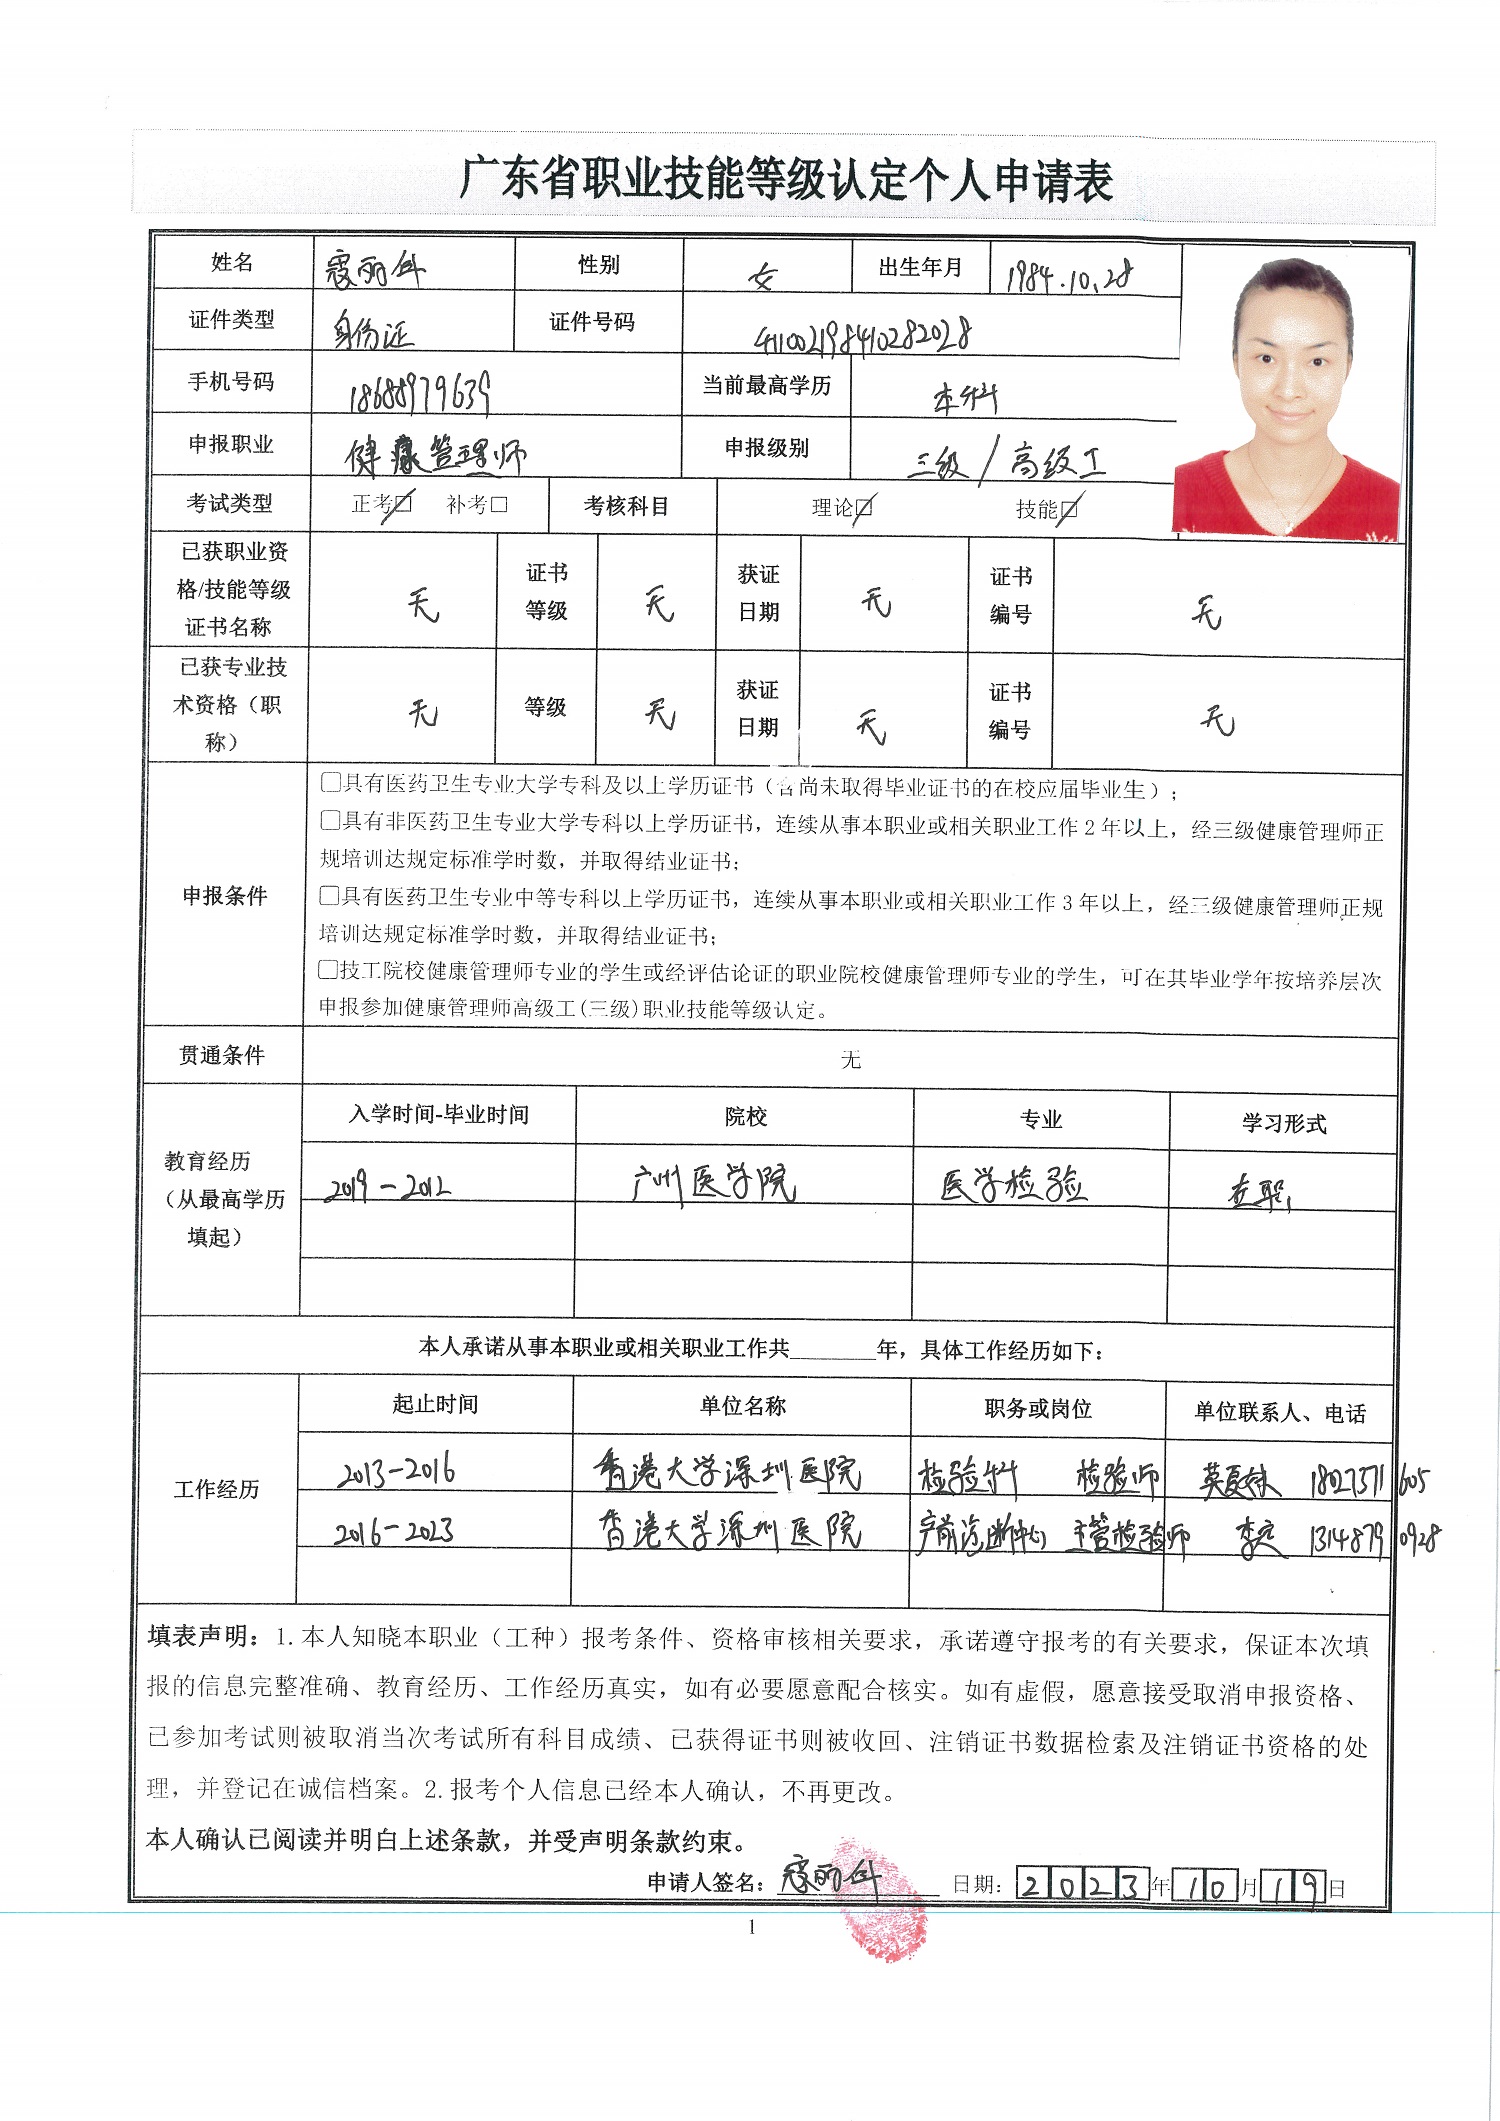 广东省职业技能等级认定个人申请表
姓名 寇丽 性别 女 出生年月 1984.10.28
证件类型 身份证 证件号码 411002198410282028
手机号码 18688979639 当前最高学历 本科
申报职业 健康管理师 申报级别 三级/高级工
考试类型 正考☑ 补考□ 考核科目 理论☑ 技能☑
已获职业资格/技能等级证书名称 无 证书等级 无 获证日期 无 证书编号 无
已获专业技术资格（职称） 无 等级 无 获证日期 无 证书编号 无
申报条件
□具有医药卫生专业大学专科及以上学历证书（含尚未取得毕业证书的在校应届毕业生）；
□具有非医药卫生专业大学专科以上学历证书，连续从事本职业或相关职业工作 2 年以上，经三级健康管理师正
规培训达规定标准学时数，并取得结业证书；
□具有医药卫生专业中等专科以上学历证书，连续从事本职业或相关职业工作 3 年以上，经三级健康管理师正规
培训达规定标准学时数，并取得结业证书；
□技工院校健康管理师专业的学生或经评估论证的职业院校健康管理师专业的学生，可在其毕业学年按培养层次
申报参加健康管理师高级工(三级)职业技能等级认定。
贯通条件 无
教育经历（从最高学历填起）
入学时间-毕业时间 院校 专业 学习形式
2019-2012 广州医学院 医学检验 在职
本人承诺从事本职业或相关职业工作共____年，具体工作经历如下：
工作经历
起止时间 单位名称 职务或岗位 单位联系人、电话
2013-2016 香港大学深圳医院 检验科 检验师 英夏妹 18027571605
2016-2023 香港大学深圳医院 产前诊断中心 主管检验师 李 13148790928
填表声明：1.本人知晓本职业（工种）报考条件、资格审核相关要求，承诺遵守报考的有关要求，保证本次填
报的信息完整准确、教育经历、工作经历真实，如有必要愿意配合核实。如有虚假，愿意接受取消申报资格、
已参加考试则被取消当次考试所有科目成绩、已获得证书则被收回、注销证书数据检索及注销证书资格的处
理，并登记在诚信档案。2.报考个人信息已经本人确认，不再更改。
本人确认已阅读并明白上述条款，并受声明条款约束。
申请人签名：寇丽 日期：2023年10月19日
1